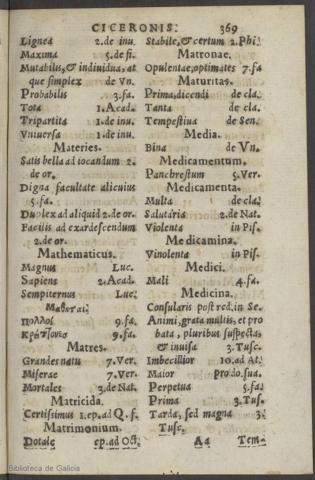 CICERONIS. 369
Lignea 2.de inu.
Maxima 5.de fi.
Mutabilis,& indiuidua, at
que simplex de Vn.
Probabilis 3.fa.
Tota 1.Acad.
Tripartita 1.de inu.
Vniuersa 1.de inu.
Materies.
Satis bella ad iocandum 2.
de or.
Digna facultate alicuius
5.fa.
Duplex ad aliquid 2.de or.
Facilis ad exardescendum
2.de or.
Mathematicus.
Magnus Luc.
Sapiens 2.Acad.
Sempiternus Luc.
πολλοί 9.fa.
9.fa.
Matres.
Grandes natu 7.Ver.
Miserae 7.Ver.
Mortales 3.de Nat.
Matricida.
Certissimus 1.ep.ad Q.f.
Matrimonium.
Dotale ep.ad Oct.
Stabile,& certum 2.Phi.
Matronae.
Opulentae,optimates 7.fa
Maturitas.
Prima,dicendi de cla.
Tanta de cla.
Tempestiua de Sen.
Media.
Bina de Vn.
Medicamentum.
Panchrestum 5.Ver.
Medicamenta.
Multa de cla.
Salutaria 2.de Nat.
Violenta in Pis.
Medicamina.
Vinolenta in Pis.
Medici.
Mali 4.fa.
Medicina.
Consularis post red.in Se.
Animi,grata multis, et pro
bata, pluribus suspecta,
& inuisa 3.Tusc.
Imbecillior 10.ad At.
Maior pro do.sua.
Perpetua 5.fa.
Prima 3.Tus.
Tarda, sed magna 3.
Tusc.
Aa Tem-
Biblioteca de Galicia